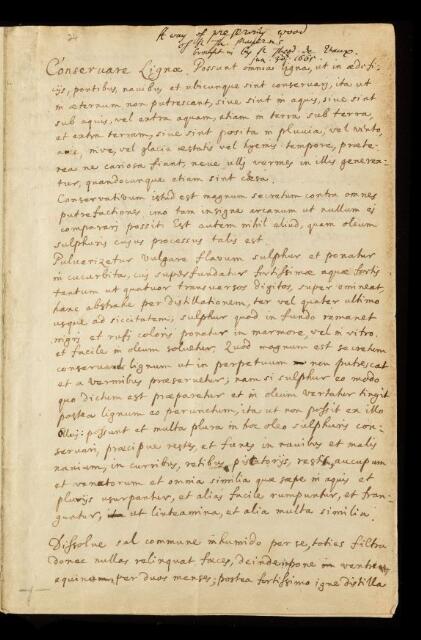 A way of preserving wood
brought in by Sr Theod. de Vaux.
Jan. 1665.
Conservare Ligna. Possunt omnia ligna, ut in ædifi-
cijs, pontibus, navibus et ubicunque sint conservari, ita ut
in æternum non putrescant, sive sint in aquis, sive sint
sub aquis, vel extra aquam, etiam in terra sub terra,
et extra terram, sive sint posita in pluvia, vel vinto,
nive, vel glacia æstatis vel hyemis tempore, præte-
rea ne cariosa fiant, neve ulli vermes in illis generen-
tur, quandocunque etiam sint cæsa.
Conservativum istud est magnum secretum contra omnes
putrefactiones, imo tam insigne arcanum ut nullum ei
comparari possit. Est autem nihil aliud, quam oleum
sulphuris cujus processus talis est.
Pulverizetur vulgare flavum sulphur et ponatur
in cucurbita, cui superfundatur fortissimæ aquæ fortis
tantum ut quatuor transversos digitos, super emineat,
hanc abstrahe per distillationem, ter vel quater ultimo
usque ad siccitatem; sulphur quod in fundo remanet
nigri et rufi coloris ponatur in marmore, vel in vitro,
et facile in oleum solvetur. Quod magnum est secretum
conservandi lignum ut in perpetuum non putrescat
et a vermibus præservetur; nam si sulphur eo modo
quo dictum est præparetur et in oleum vertatur tingit
postea lignum eo perunctum, ita ut non possit ex illo
possunt et multa plura in hoc oleo sulphuris con-
servari, præcipue restes, et funes in navibus et malis
navium, in curribus, retibus piscatorijs, aucupum
et venatorum et omnia similia quæ sæpe in aquis et
plurijs usurpantur, et alias facile rumpuntur, et fran-
guntur, ut linteamina, et alia multa similia.
Dissolve sal commune in humido per se, toties filtra
donec nullas relinquat fæces, deinde pone in ventre
equino per duos menses; postea fortissimo igne distilla